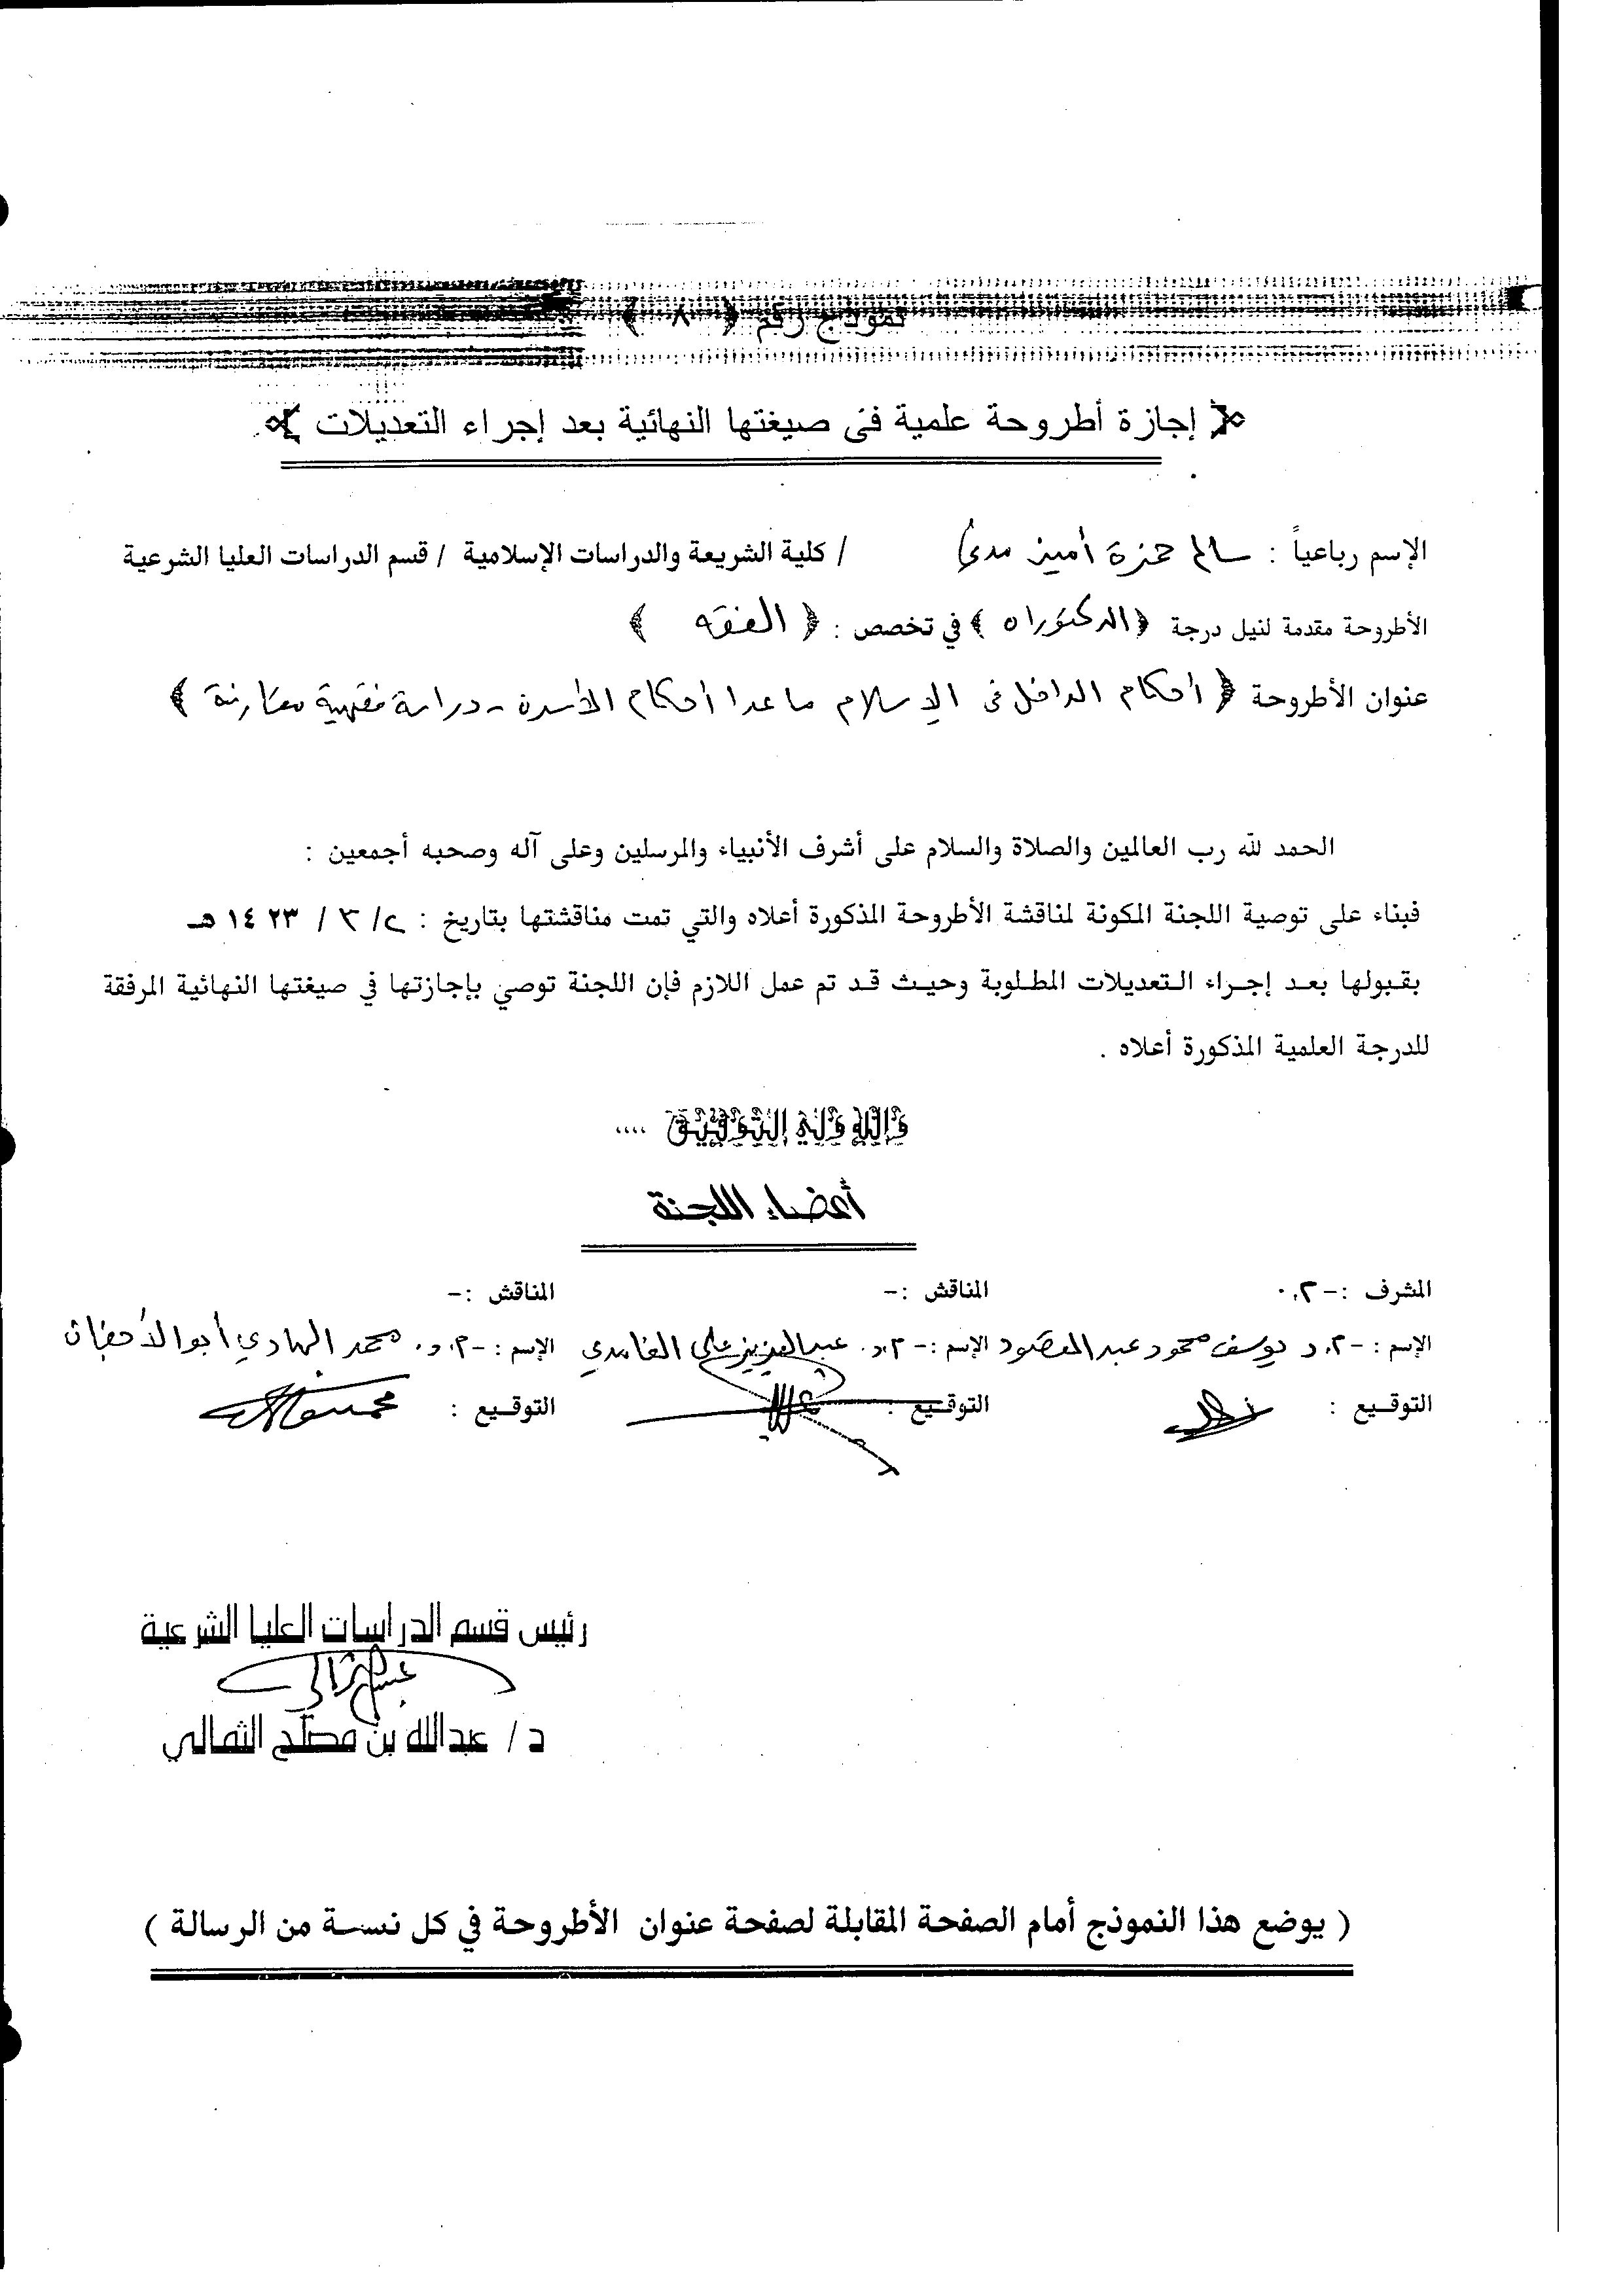 نموذج رقم ﴿ ٨ ﴾
﴿ إجازة أطروحة علمية في صيغتها النهائية بعد إجراء التعديلات ﴾
الإسم رباعياً : سالم حمزة أمين مدني / كلية الشريعة والدراسات الإسلامية / قسم الدراسات العليا الشرعية
الأطروحة مقدمة لنيل درجة ﴿ الدكتوراه ﴾ في تخصص : ﴿ الفقه ﴾
عنوان الأطروحة ﴿ أحكام الداخل في الإسلام ماعدا أحكام الأسرة - دراسة فقهية مقارنة ﴾
الحمد لله رب العالمين والصلاة والسلام على أشرف الأنبياء والمرسلين وعلى آله وصحبه أجمعين :
فبناء على توصية اللجنة المكونة لمناقشة الأطروحة المذكورة أعلاه والتي تمت مناقشتها بتاريخ : ٢ / ٣ / ١٤٢٣ هـ
بقبولها بعد إجراء التعديلات المطلوبة وحيث قد تم عمل اللازم فإن اللجنة توصي بإجازتها في صيغتها النهائية المرفقة
للدرجة العلمية المذكورة أعلاه .
والله ولي التوفيق ....
أعضاء اللجنة
المشرف :- المناقش :- المناقش :-
الإسم :- أ.د يوسف محمود عبد المقصود الإسم :- أ.د. عبد العزيز علي الغامدي الإسم :- أ.د. محمد الهادي أبو الأجفان
التوقيع : التوقيع : التوقيع :
رئيس قسم الدراسات العليا الشرعية
د / عبدالله بن مصلح الثمالي
( يوضع هذا النموذج أمام الصفحة المقابلة لصفحة عنوان الأطروحة في كل نسخة من الرسالة )